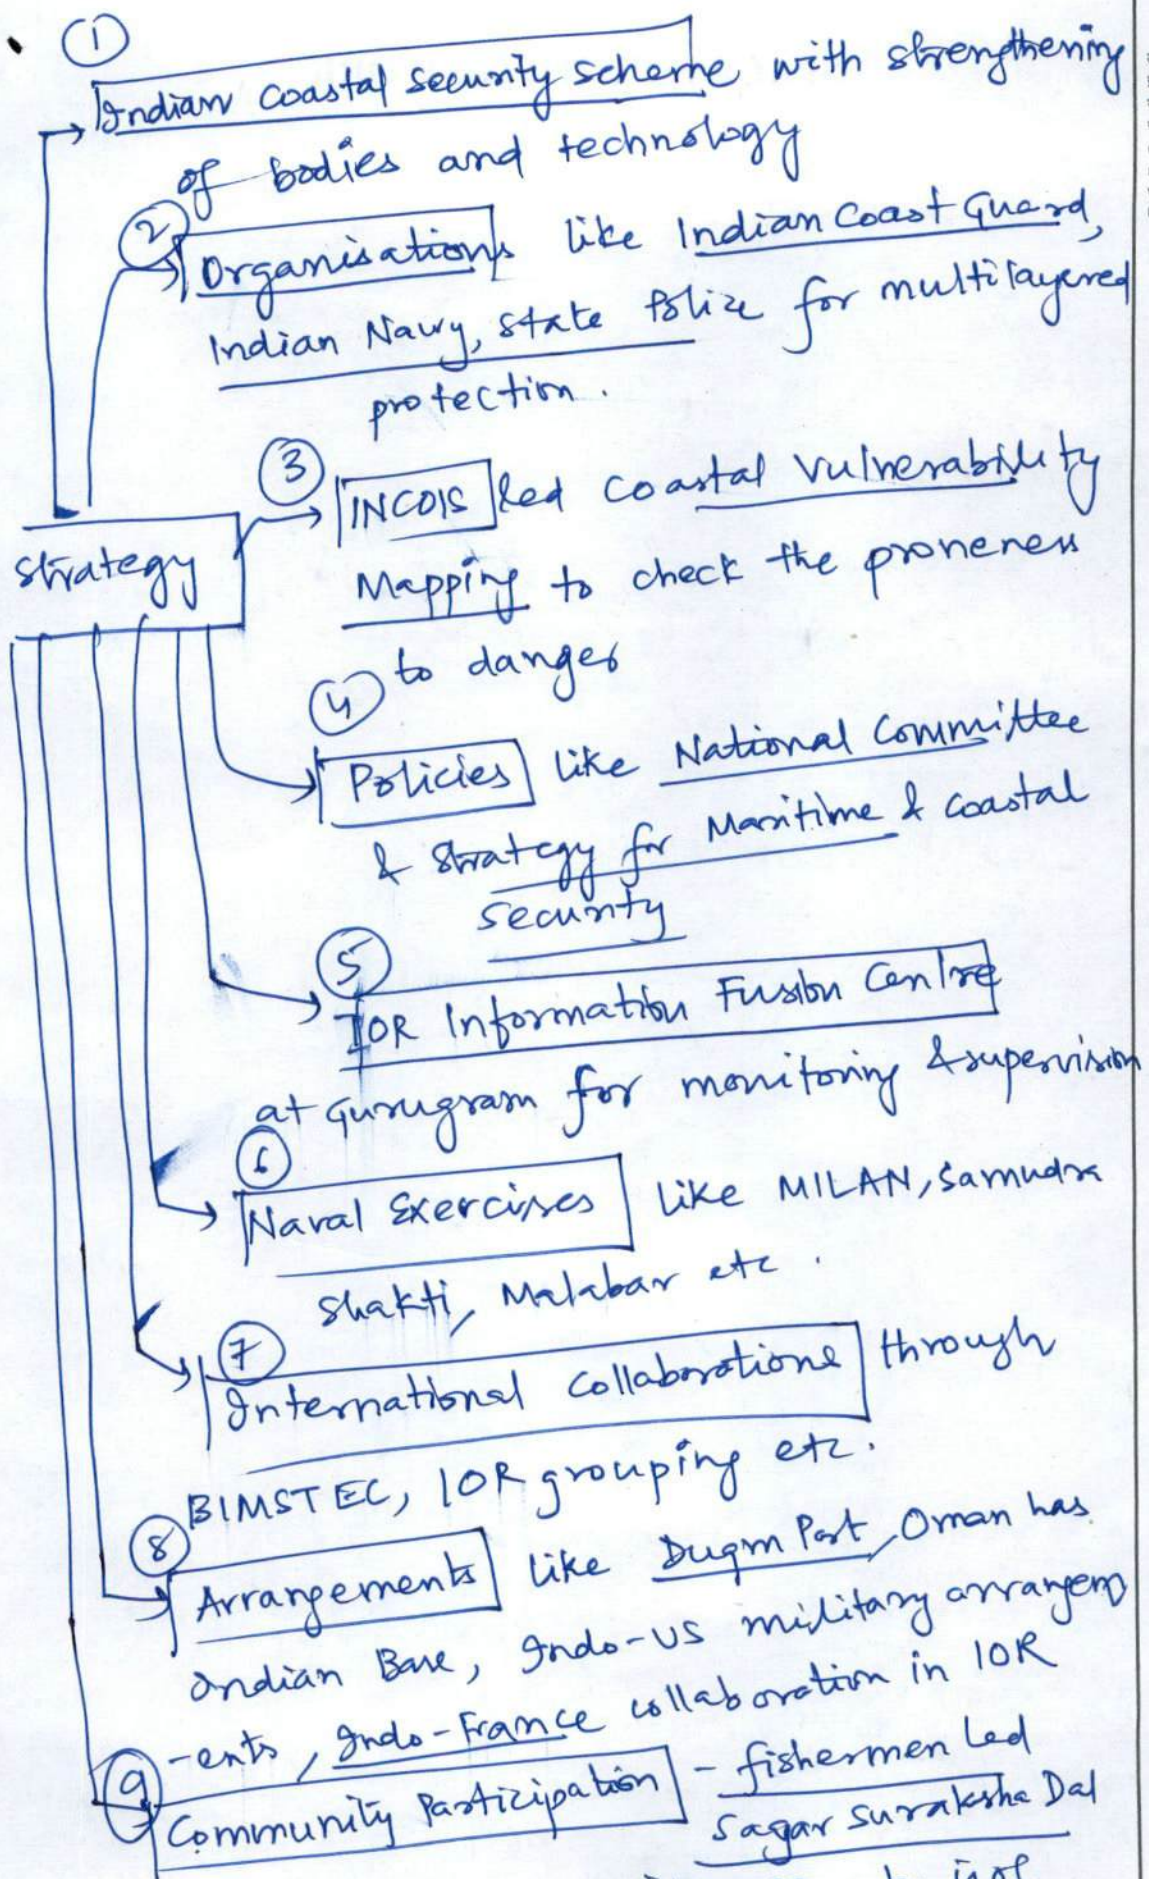 ①
Indian coastal security scheme with strengthening
of bodies and technology
②
Organisations like Indian Coast Guard,
Indian Navy, state Police for multilayered
protection.
③
INCOIS led coastal vulnerability
Mapping to check the proneness
to danger
Strategy
④
Policies like National Committee
& Strategy for Maritime & coastal
security
⑤
IOR Information Fusion Centre
at Gurugram for monitoring & supervision
⑥
Naval Exercises like MILAN, Samudra
Shakti, Malabar etc.
⑦
International Collaborations through
BIMSTEC, IOR grouping etc.
⑧
Arrangements like Duqm Port, Oman has
Indian Base, Indo-US military arrangem
-ents, Indo-France collaboration in IOR
⑨
Community Participation - fishermen led
Sagar Suraksha Dal